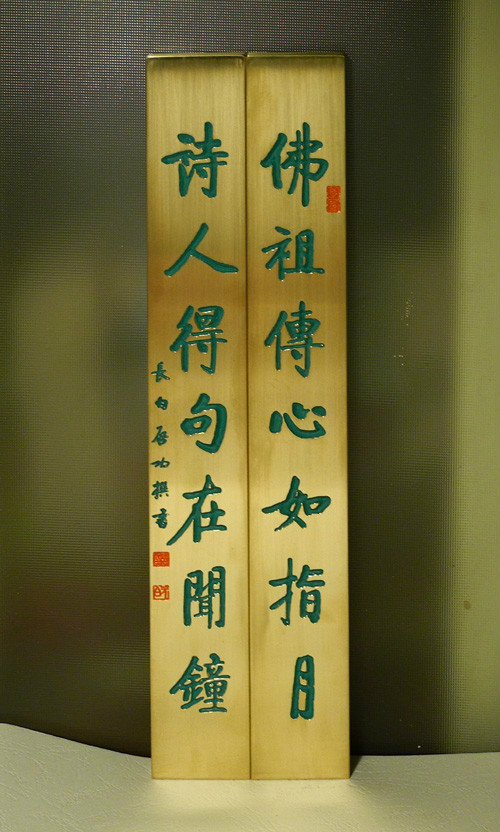 佛祖傳心如指月
詩人得句在聞鐘
長白啓功撰書